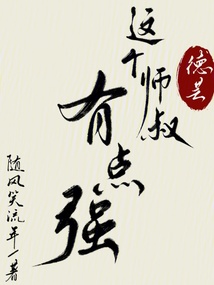 这个师叔
有点强
德芸
随风笑流年一著